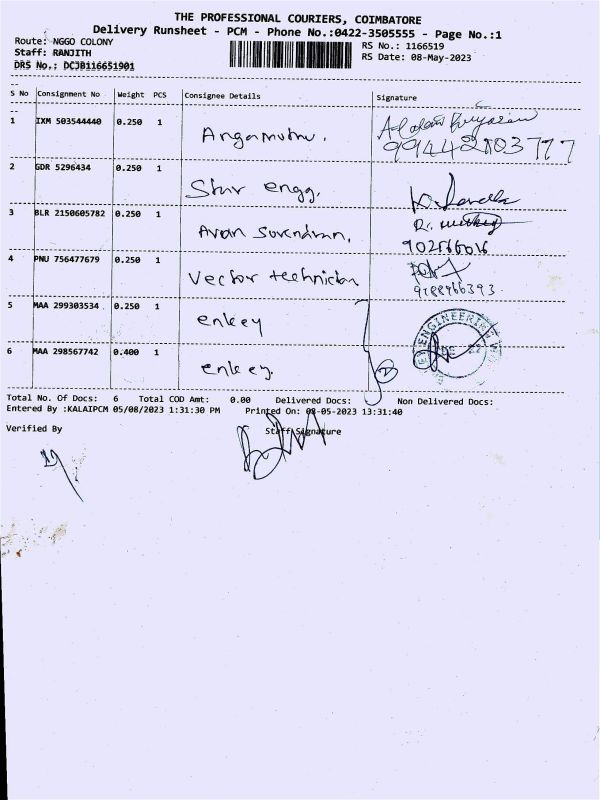 THE PROFESSIONAL COURIERS, COIMBATORE
Delivery Runsheet - PCM - Phone No.:0422-3505555 - Page No.:1
Route: NGGO COLONY
RS No.: 1166519
Staff: RANJITH
RS Date: 08-May-2023
DRS No.: DCJB116651901
S No Consignment No Weight PCS Consignee Details Signature
1 IXM 503544440 0.250 1 Angamuthu.
2 GDR 5296434 0.250 1 Star engg.
3 BLR 2150605782 0.250 1 Avan Surendran.
4 PNU 756477679 0.250 1 Vector technician
9188966393
5 MAA 299303534 0.250 1 enkey
ENGINEERING
6 MAA 298567742 0.400 1 enkey.
Total No. Of Docs: 6 Total COD Amt: 0.00 Delivered Docs: Non Delivered Docs:
Entered By :KALAIPCM 05/08/2023 1:31:30 PM Printed On: 08-05-2023 13:31:40
Verified By Staff Signature